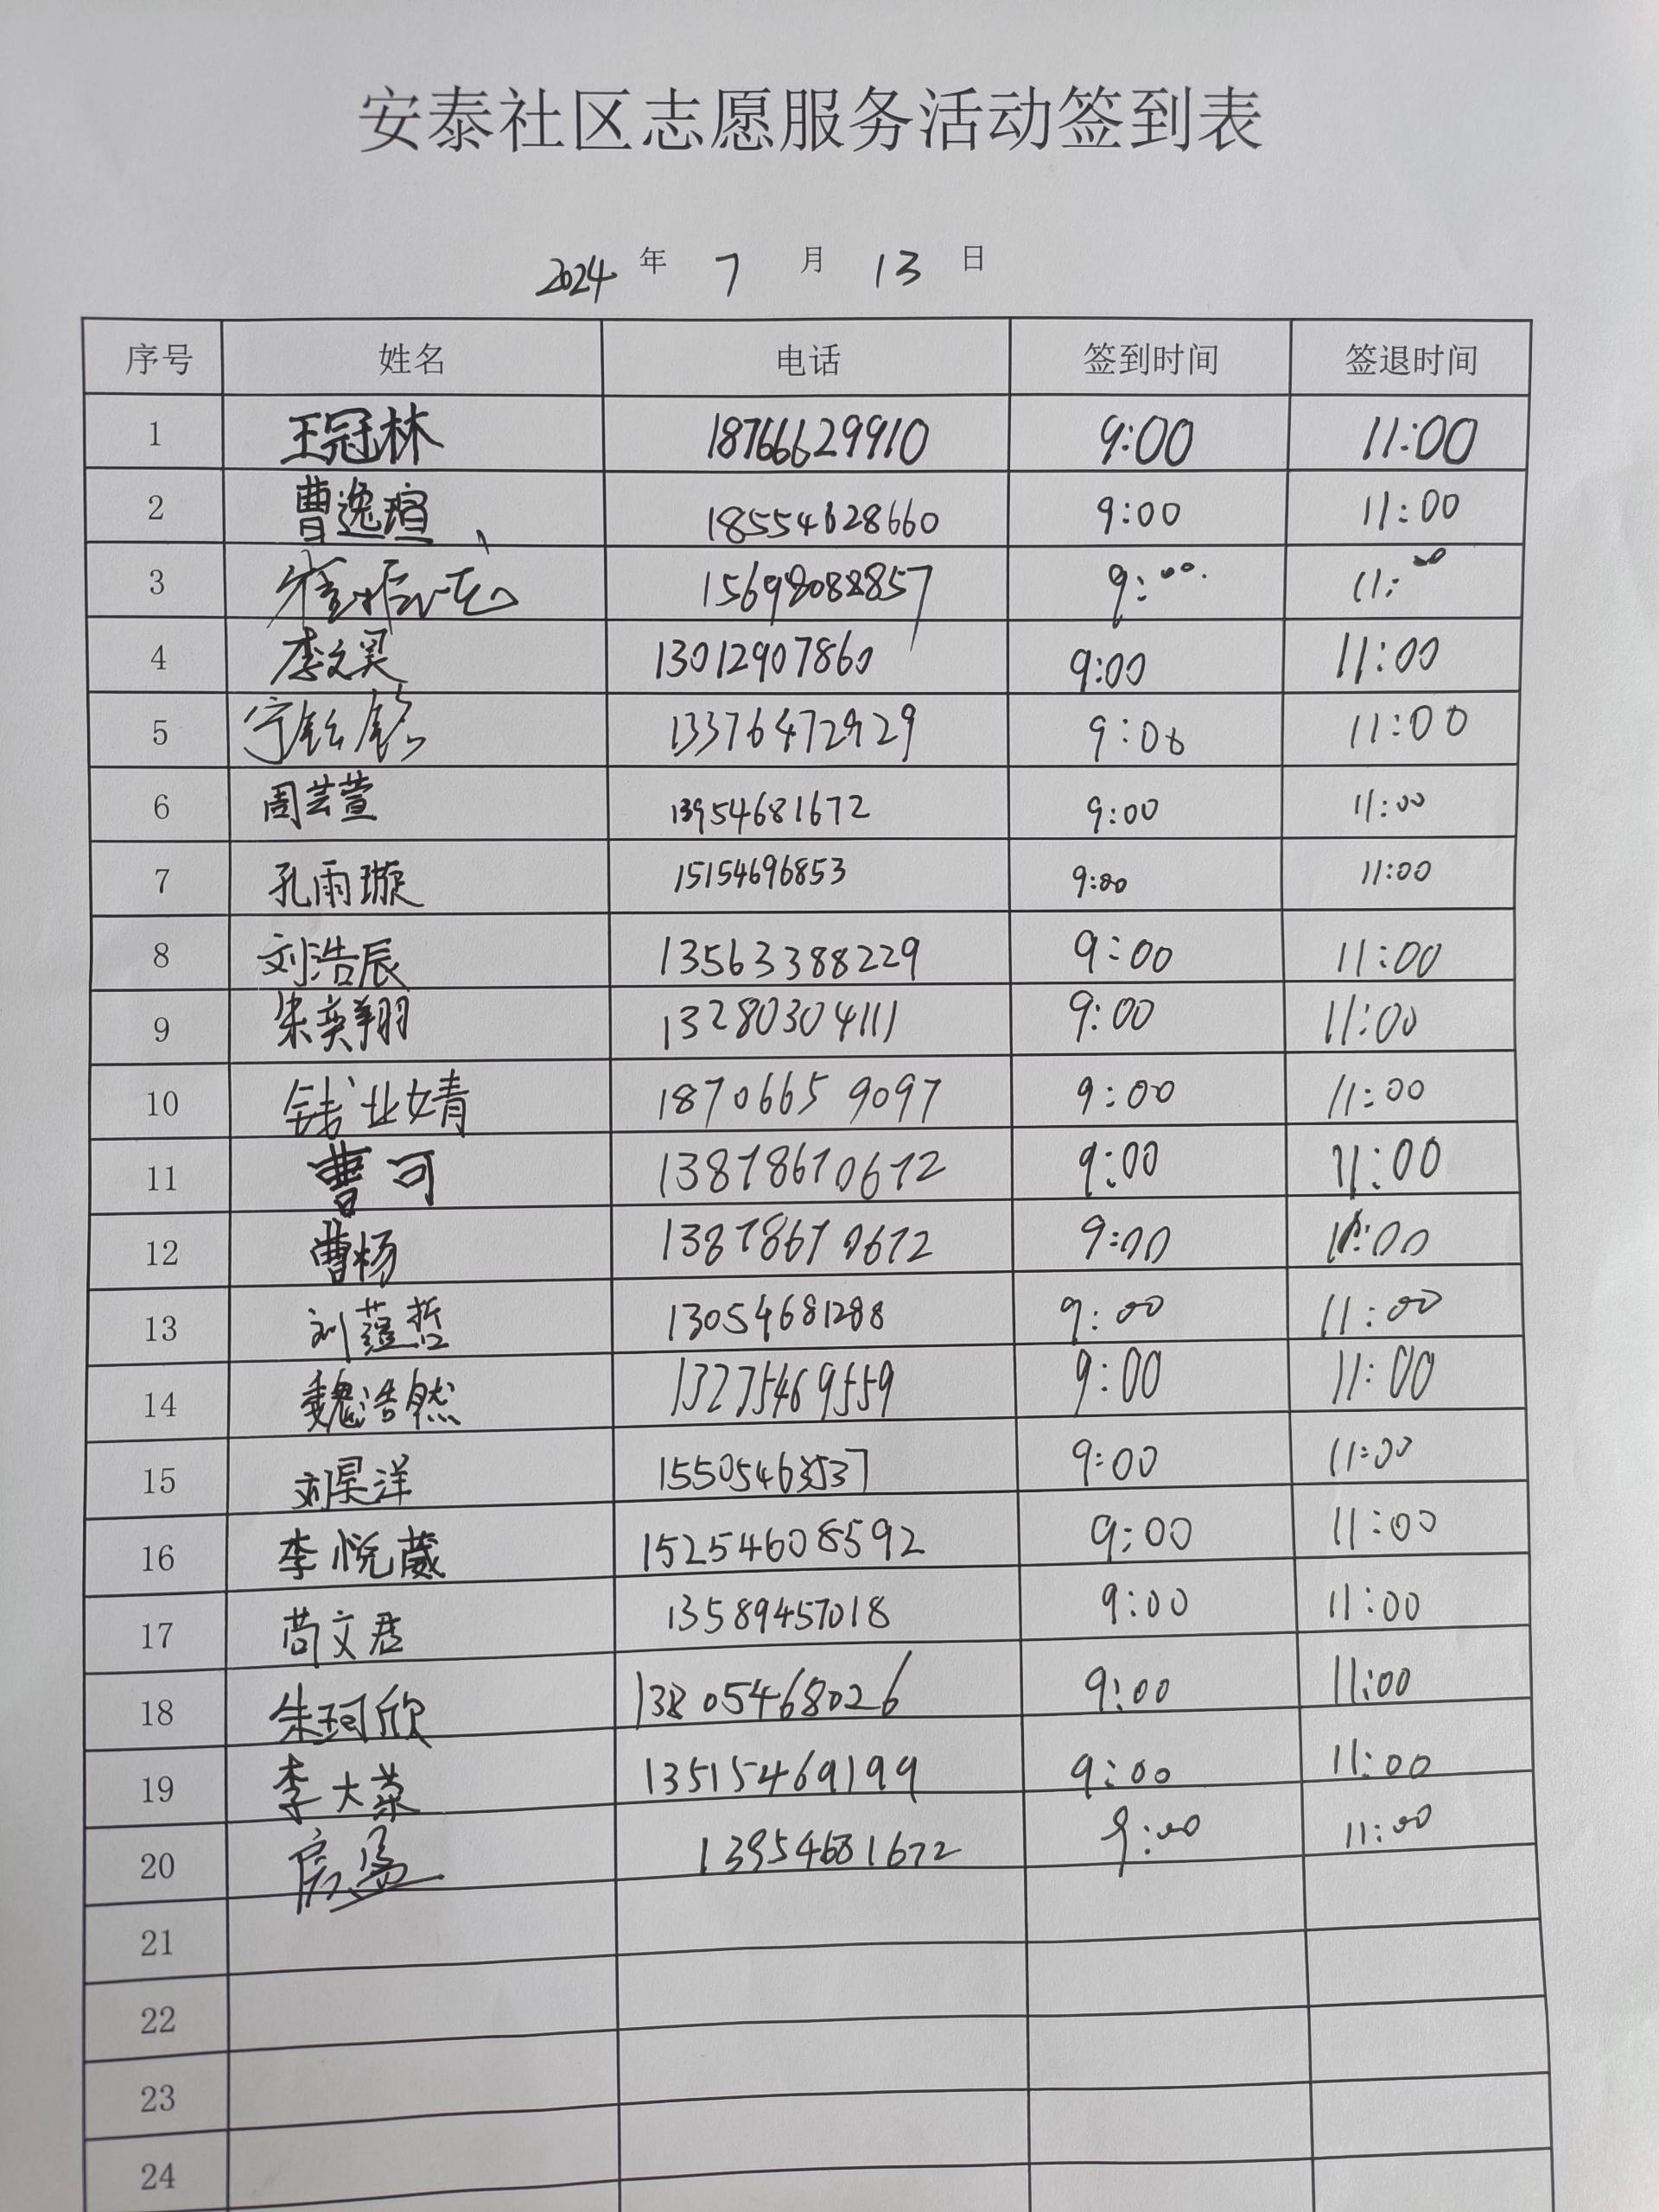 安泰社区志愿服务活动签到表
2024 年 7 月 13 日
序号 姓名 电话 签到时间 签退时间
1 王冠林 18766629910 9:00 11:00
2 曹逸瑄 18554628660 9:00 11:00
3 15698088857 9:00 11:00
4 李文昊 13012907860 9:00 11:00
5 宁钰铭 13376472929 9:00 11:00
6 周芸萱 13954681672 9:00 11:00
7 孔雨璇 15154696853 9:00 11:00
8 刘浩辰 13563388229 9:00 11:00
9 朱奕翔 13280304111 9:00 11:00
10 钱业婧 18706659097 9:00 11:00
11 曹可 13878670672 9:00 11:00
12 曹杨 13878670672 9:00 11:00
13 刘蕴哲 13054681288 9:00 11:00
14 魏浩然 13275469559 9:00 11:00
15 刘星洋 15505463537 9:00 11:00
16 李悦葳 15254608592 9:00 11:00
17 苘文君 13589457018 9:00 11:00
18 朱珂欣 13805468026 9:00 11:00
19 李大荣 13515469199 9:00 11:00
20 房孟 13954681672 9:00 11:00
21
22
23
24